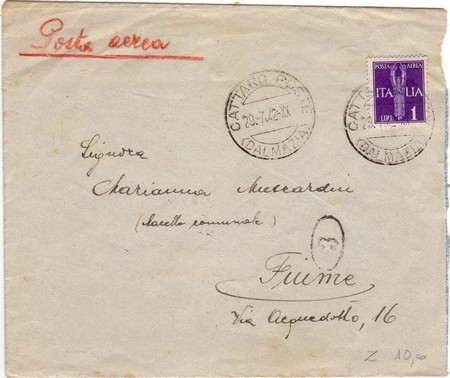 Posta aerea
CATTARO POSTE
29-7.42-XX
(DALMAZIA)
POSTA AEREA
ITALIA
LIRE 1
CATTARO
(DALMAZIA)
Signora
Marianna Muscardin
(Macello comunale)
3
Fiume
Via Acquedotto, 16
Z 10,00